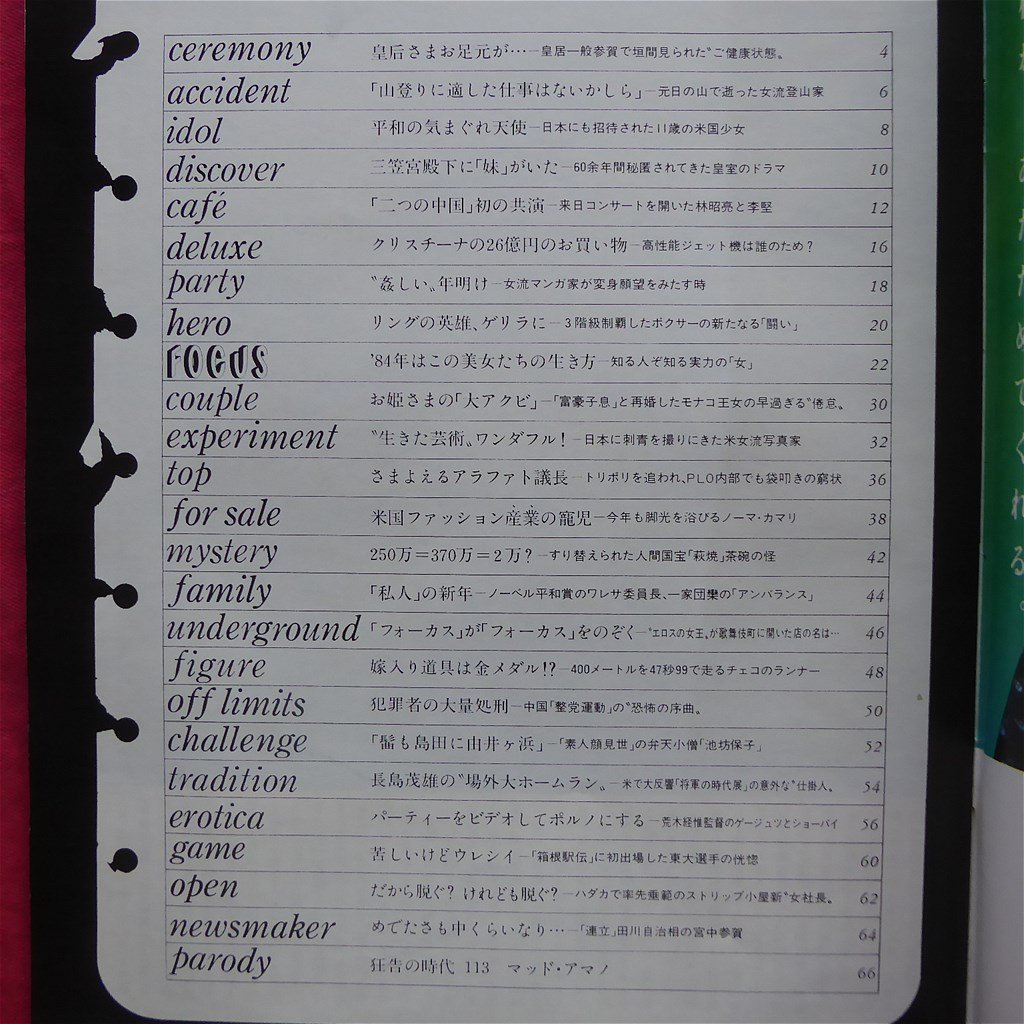 ceremony 皇后さまお足元が…―皇居一般参賀で垣間見られた〝ご健康状態〟 4
accident 「山登りに適した仕事はないかしら」―元日の山で逝った女流登山家 6
idol 平和の気まぐれ天使―日本にも招待された11歳の米国少女 8
discover 三笠宮殿下に「妹」がいた―60余年間秘匿されてきた皇室のドラマ 10
café 「二つの中国」初の共演―来日コンサートを開いた林昭亮と李堅 12
deluxe クリスチーナの26億円のお買い物―高性能ジェット機は誰のため? 16
party 〝姦しい〟年明け―女流マンガ家が変身願望をみたす時 18
hero リングの英雄、ゲリラに―3階級制覇したボクサーの新たなる「闘い」 20
FOCUS '84年はこの美女たちの生き方―知る人ぞ知る実力の「女」 22
couple お姫さまの「大アクビ」―「富豪子息」と再婚したモナコ王女の早過ぎる〝倦怠〟 30
experiment 〝生きた芸術〟ワンダフル!―日本に刺青を撮りにきた米女流写真家 32
top さまよえるアラファト議長―トリポリを追われ、PLO内部でも袋叩きの窮状 36
for sale 米国ファッション産業の寵児―今年も脚光を浴びるノーマ・カマリ 38
mystery 250万=370万=2万?―すり替えられた人間国宝「萩焼」茶碗の怪 42
family 「私人」の新年―ノーベル平和賞のワレサ委員長、一家団欒の「アンバランス」 44
underground 「フォーカス」が「フォーカス」をのぞく―〝エロスの女王〟が歌舞伎町に開いた店の名は… 46
figure 嫁入り道具は金メダル!?―400メートルを47秒99で走るチェコのランナー 48
off limits 犯罪者の大量処刑―中国「整党運動」の〝恐怖の序曲〟 50
challenge 「髷も島田に由井ヶ浜」―「素人顔見世」の弁天小僧「池坊保子」 52
tradition 長島茂雄の〝場外大ホームラン〟―米で大反響「将軍の時代展」の意外な〝仕掛人〟 54
erotica パーティーをビデオしてポルノにする―荒木経惟監督のゲージュツとショーバイ 56
game 苦しいけどウレシイ―「箱根駅伝」に初出場した東大選手の恍惚 60
open だから脱ぐ? けれども脱ぐ?―ハダカで率先垂範のストリップ小屋新〝女社長〟 62
newsmaker めでたさも中くらいなり…―「連立」田川自治相の宮中参賀 64
parody 狂告の時代 113 マッド・アマノ 66